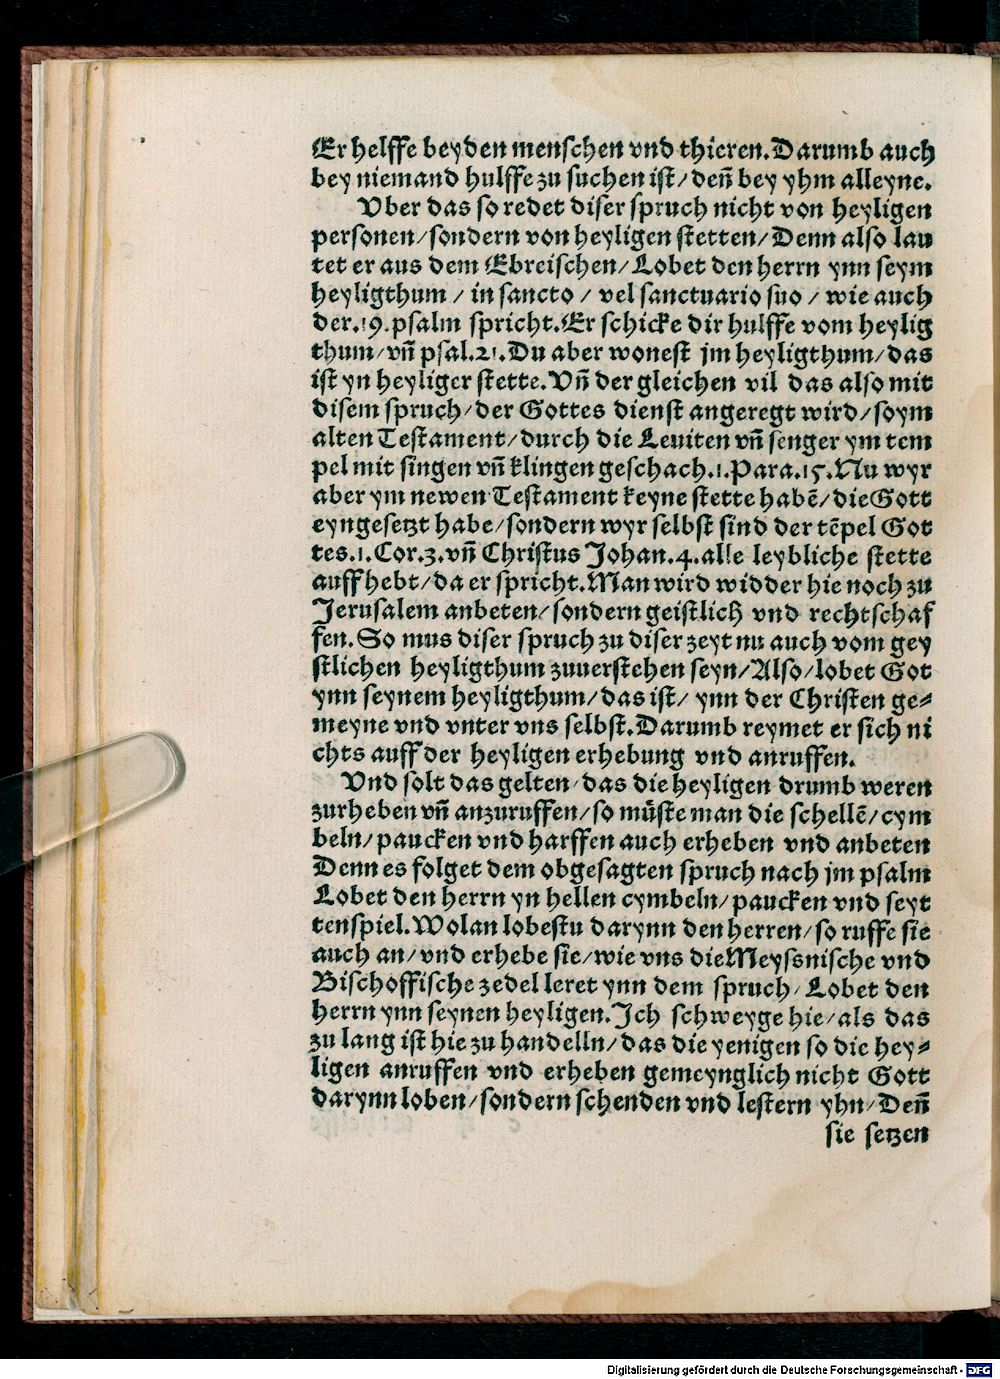 Er helffe beyden menschen vnd thieren. Darumb auch
bey niemand hulffe zu suchen ist/ deñ bey yhm alleyne.
Vber das so redet diser spruch nicht von heyligen
personen/ sondern von heyligen stetten/ Denn also lau
tet er aus dem Ebreischen/ Lobet den herrn ynn seym
heyligthum / in sancto / vel sanctuario suo / wie auch
der .19. psalm spricht. Er schicke dir hulffe vom heylig
thum/ vñ psal.21. Du aber wonest jm heyligthum/ das
ist yn heyliger stette. Vñ der gleichen vil das also mit
disem spruch/ der Gottes dienst angeregt wird/ so ym
alten Testament/ durch die Leuiten vñ senger ym tem
pel mit singen vñ klingen geschach.1. Para.15. Nu wyr
aber ym newen Testament keyne stette habē/ die Gott
eyngesetzt habe/ sondern wyr selbst sind der tēpel Got
tes.1. Cor.3. vñ Christus Johan.4. alle leybliche stette
auffhebt/ da er spricht. Man wird widder hie noch zu
Jerusalem anbeten/ sondern geistlich vnd rechtschaf
fen. So mus diser spruch zu diser zeyt nu auch vom gey
stlichen heyligthum zuuerstehen seyn/ Also/ lobet Got
ynn seynem heyligthum/ das ist/ ynn der Christen ge⸗
meyne vnd vnter vns selbst. Darumb reymet er sich ni
chts auff der heyligen erhebung vnd anruffen.
Vnd solt das gelten/ das die heyligen drumb weren
zurheben vñ anzuruffen/ so müste man die schellē/ cym
beln/ paucken vnd harffen auch erheben vnd anbeten
Denn es folget dem obgesagten spruch nach jm psalm
Lobet den herrn yn hellen cymbeln/ paucken vnd seyt
tenspiel. Wolan lobestu darynn den herren/ so ruffe sie
auch an/ vnd erhebe sie/ wie vns die Meyssnische vnd
Bischoffische zedel leret ynn dem spruch/ Lobet den
herrn ynn seynen heyligen. Ich schweyge hie/ als das
zu lang ist hie zu handelln/ das die yenigen so die hey⸗
ligen anruffen vnd erheben gemeynglich nicht Gott
darynn loben/ sondern schenden vnd lestern yhn/ Deñ
sie setzen
Digitalisierung gefördert durch die Deutsche Forschungsgemeinschaft - DFG